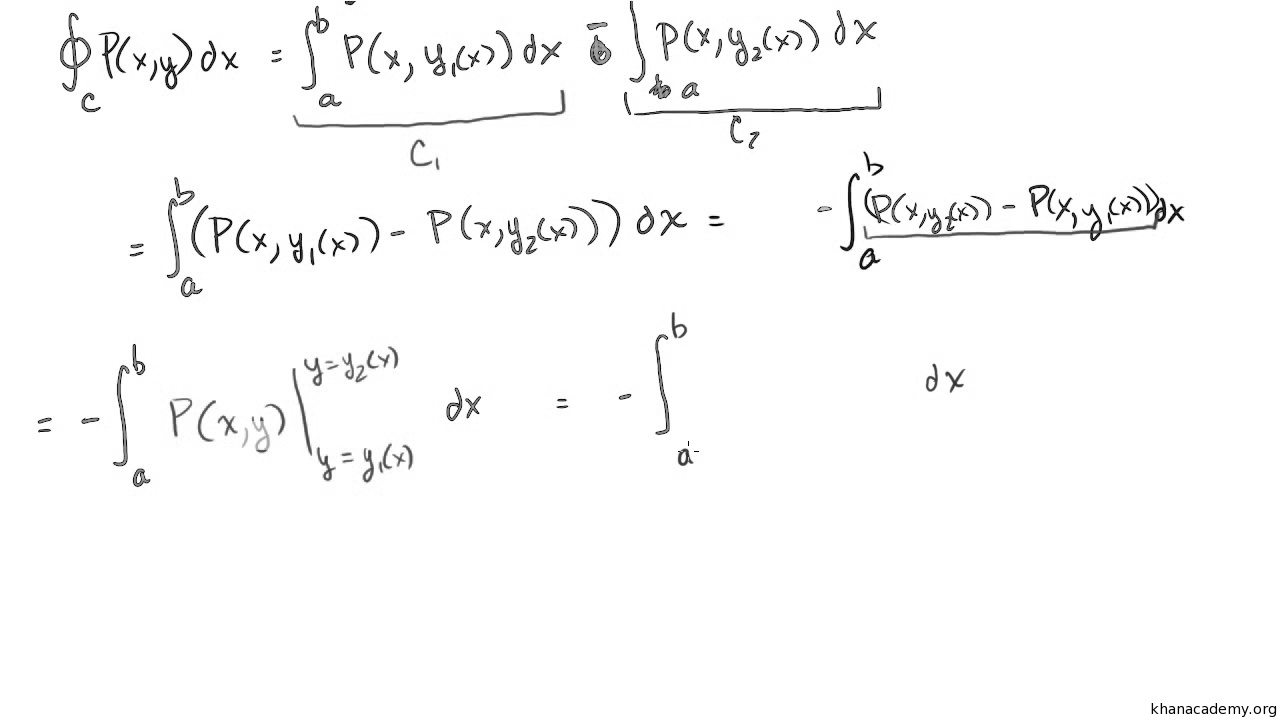 ∮_C P(x,y) dx = ∫_a^b P(x, y₁(x)) dx - ∫_a P(x, y₂(x)) dx
C₁ C₂
= ∫_a^b (P(x, y₁(x)) - P(x, y₂(x))) dx = - ∫_a^b (P(x,y₂(x)) - P(x, y₁(x))) dx
= - ∫_a^b P(x,y) |_{y = y₁(x)}^{y = y₂(x)} dx = - ∫_a^b dx
khanacademy.org